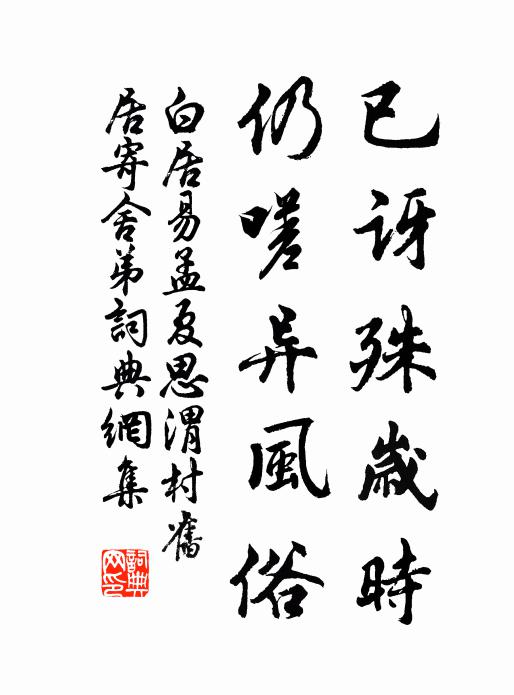 已讶殊歲時
仍嗟异風俗
白居易孟夏思渭村舊
居寄舍弟詞典網集
詞典网印